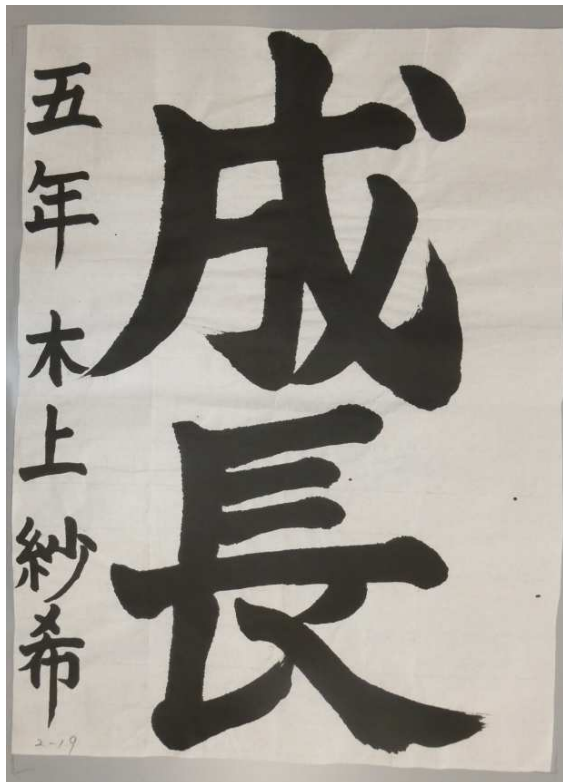 成長
五年 木上 紗希
2-19